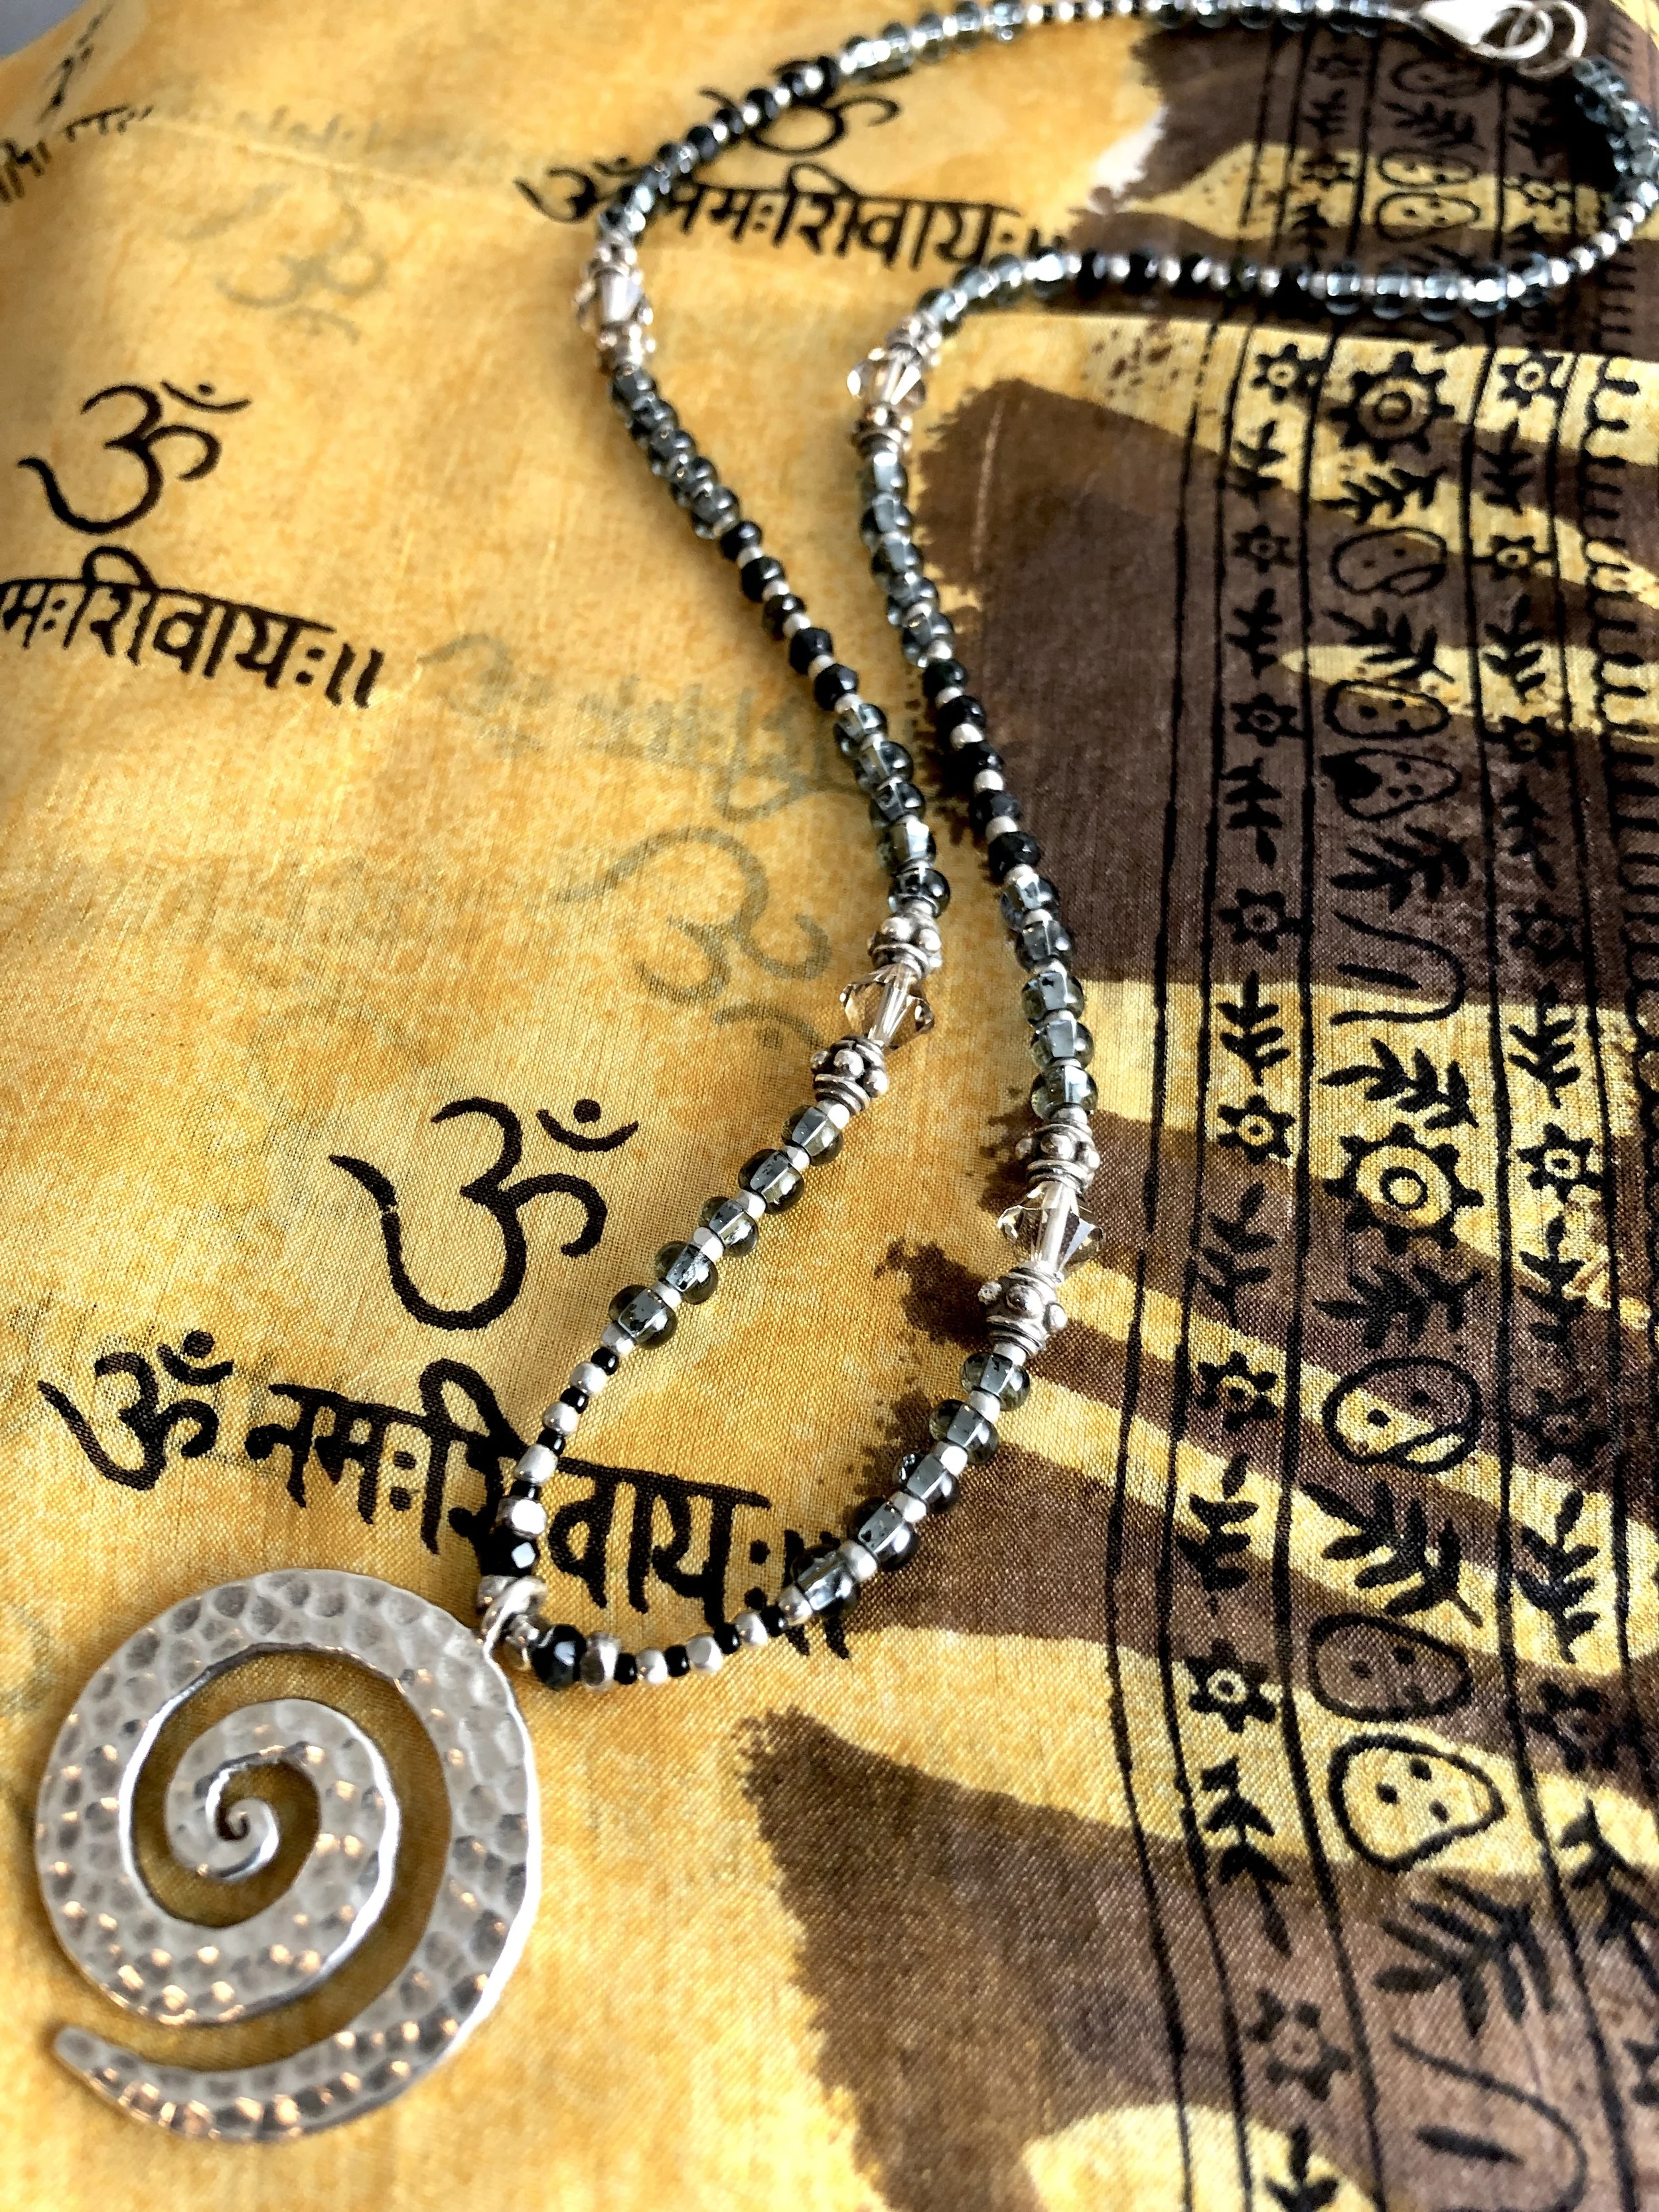 ॐ
ॐ नमःशिवायः॥
ॐ
मःशिवायः॥
ॐ
ॐ नमःशिवायः॥